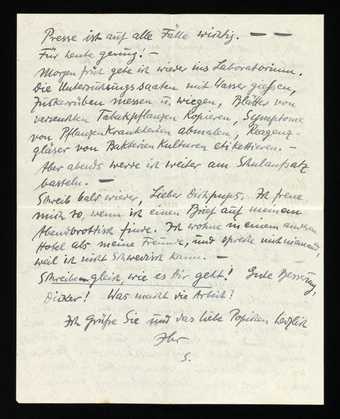 Presse ist auf alle Fälle wichtig. — —
Für heute genug! —
Morgen früh gehe ich wieder ins Laboratorium.
Die Untersuchungssaaten mit Wasser gießen,
Zuckerrüben messen u. wiegen, Blätter von
verseuchten Tabakpflanzen kopieren, Symptome
von Pflanzenkrankheiten abmalen, Reagenz-
gläser von Bakterien Kulturen etikettieren. —
Aber abends werde ich weiter am Schulaufsatz
basteln. —
Schreib bald wieder, Lieber Ich freue
mich so, wenn ich einen Brief auf meinem
Abendbrottisch finde. Ich wohne in einem andren
Hotel als meine Freunde, und spreche mit niemand,
weil ich nicht Schwedisch kann. —
Schreiben gleich, wie es Dir geht! Gute Besserung,
Dichter! Was macht die Arbeit?
Ich grüße Sie und das liebe herzlich
Ihr
S.